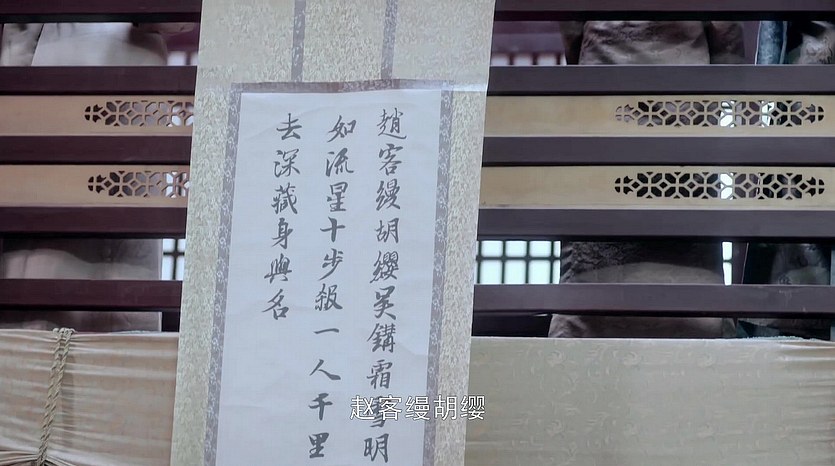 趙客縵胡纓吴霜雪明
如流星十步殺一人千里
去深藏身與名
赵客缦胡缨